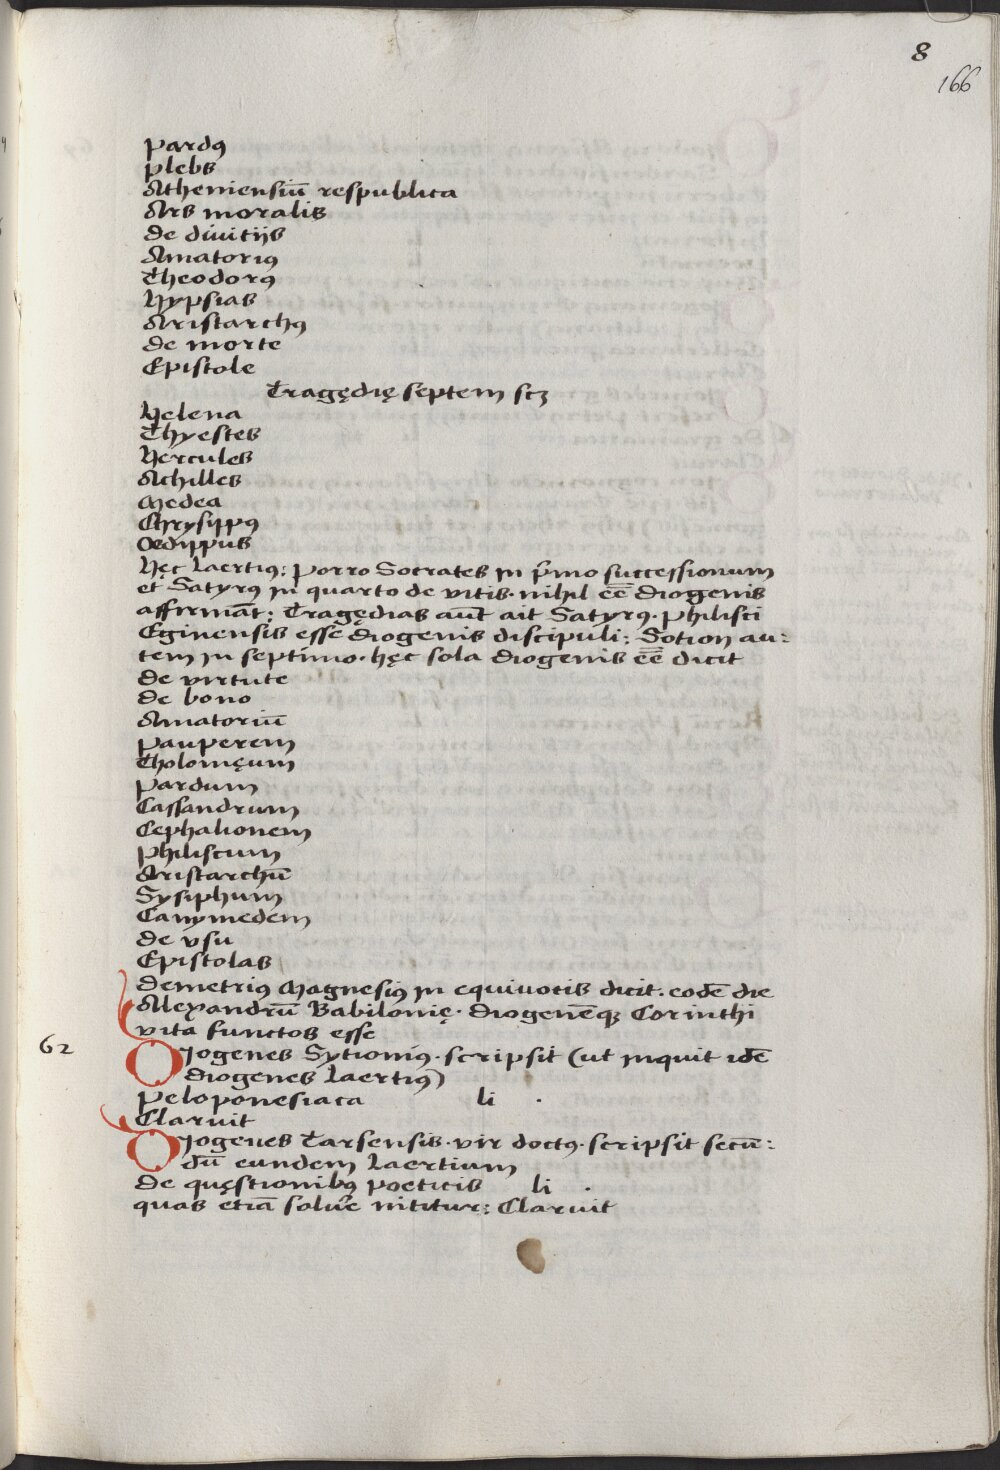 8
166
Pardꝰ
Plebs
Atheniensiū respublica
Ars moralis
De diuitijs
Amatoriꝰ
Theodorꝰ
Hypsias
Aristarchꝰ
De morte
Epistole
Tragędię septem scꝫ
Helena
Thyestes
Hercules
Achilles
Medea
Chrysippꝰ
Oedippus
Hęc Laertiꝰ: Porro Socrates in p̄mo successionum
et Satyrꝰ in quarto de vitis· nihil eē̄ Diogenis
affirmāt: Tragędias aūt ait Satyrꝰ· Philisci
Eginensis esse Diogenis discipuli: Sotion au:
tem in septimo· hęc sola Diogenis eē̄ dicit
De virtute
De bono
Amatoriū
Pauperem
Tholomęum
Pardum
Cassandrum
Cephalionem
Philiscum
Aristarchū
Sysiphum
Ganymedem
De vsu
Epistolas
Demetriꝰ Magnesiꝰ in equiuocis dicit· eodē die
Alexandrū Babilonię· Diogenēqꝫ Corinthi
vita functos esse
62
Diogenes Sytioniꝰ· scripsit (ut inquit idē
Diogenes Laertiꝰ)
Peloponesiaca li ·
Claruit
Diogenes Tarsensis· vir doctꝰ· scripsit secū:
dū eundem Laertium
De quęstionibꝰ poeticis li ·
quas etiā solu̅e nititur: Claruit